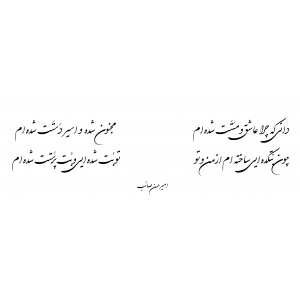 دانی که چرا عاشق و مست شده ام مجنون شده و اسیر دست شده ام
چون بتکده ایی ساخته ام از من و تو تو بت شده ایی و بت پرست شده ام
امیرحسن صائب